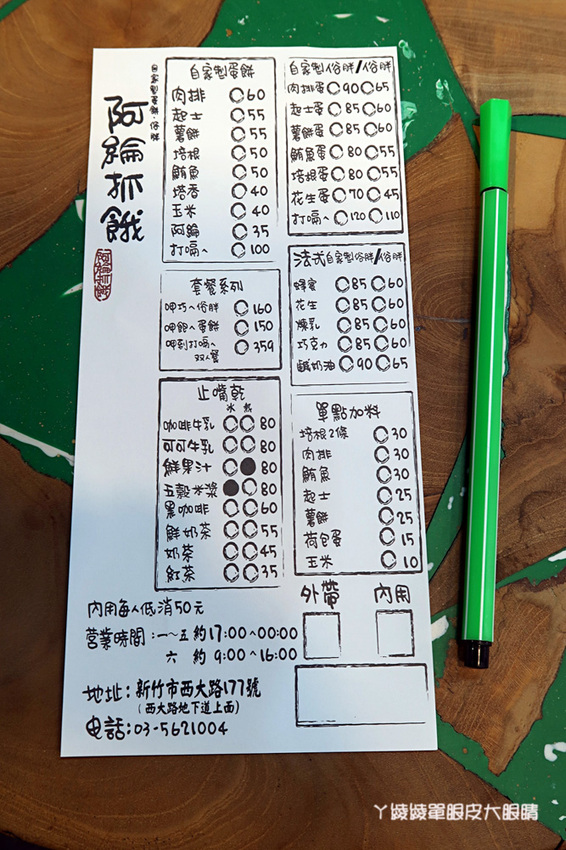 自家製蛋餅.俗胖
阿綸抓餓
自家製蛋餅
肉排 60
起士 55
薯餅 55
培根 50
鮪魚 50
塔香 40
玉米 40
阿綸 35
打嗝~ 100
套餐系列
呷巧~俗胖 160
呷飽~蛋餅 150
呷到打嗝~ 359
双人餐
止嘴乾
冰 熱
咖啡牛乳 80
可可牛乳 80
鮮果汁 80
五穀米漿 80
黑咖啡 60
鮮奶茶 55
奶茶 45
紅茶 35
自家製俗胖/俗胖
肉排蛋 90 65
起士蛋 85 60
薯餅蛋 85 60
鮪魚蛋 80 55
培根蛋 80 55
花生蛋 70 45
打嗝~ 120 110
法式自家製俗胖/俗胖
蜂蜜 85 60
花生 85 60
煉乳 85 60
巧克力 85 60
鹹奶油 90 65
單點加料
培根2條 30
肉排 30
鮪魚 30
起士 25
薯餅 25
荷包蛋 15
玉米 10
外帶 內用
內用每人低消50元
營業時間:一~五 約17:00~00:00
六 約 9:00~16:00
地址:新竹市西大路177號
(西大路地下道上面)
電話:03-5621004
ㄚ綾綾單眼皮大眼睛